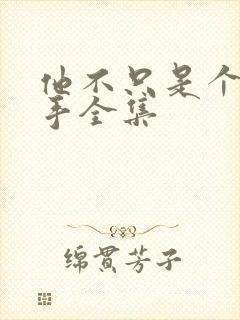 他不只是个
手全集
绵贯芳子